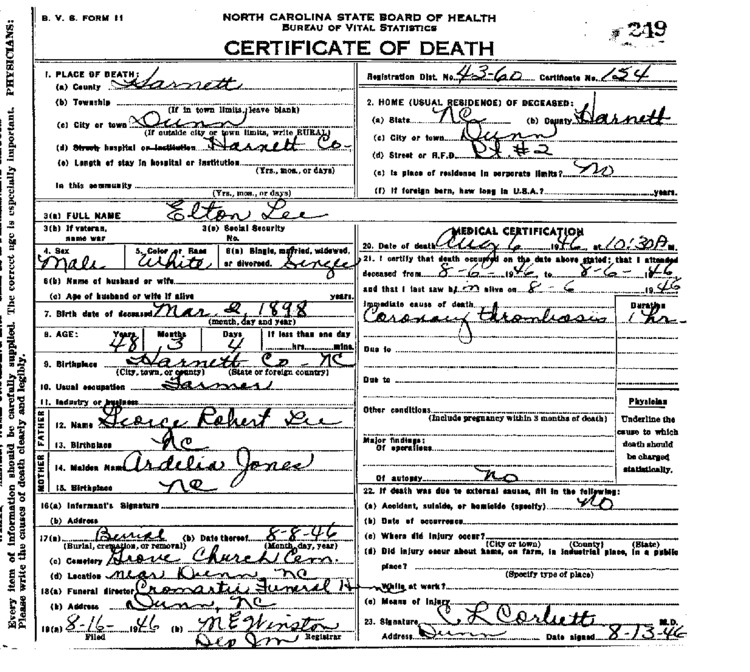 B. V. S. FORM 11
NORTH CAROLINA STATE BOARD OF HEALTH
BUREAU OF VITAL STATISTICS
CERTIFICATE OF DEATH
249
Every item of information should be carefully supplied. The correct age is especially important. PHYSICIANS:
Please write the causes of death clearly and legibly.
1. PLACE OF DEATH:
(a) County Harnett
(b) Township
(If in town limits, leave blank)
(c) City or town Dunn
(If outside city or town limits, write RURAL)
(d) Street, hospital or institution Harnett Co-
(e) Length of stay in hospital or institution
(Yrs., mos., or days)
In this community
(Yrs., mos., or days)
Registration Dist. No. 43-60 Certificate No. 154
2. HOME (USUAL RESIDENCE) OF DECEASED:
(a) State NC (b) County Harnett
(c) City or town Dunn
(d) Street or R.F.D. Rt #2
(e) Is place of residence in corporate limits? No
(f) If foreign born, how long in U.S.A.? years.
3(a) FULL NAME Elton Lee
3(b) If veteran, name war
3(c) Social Security No.
4. Sex Male
5. Color or Race White
6(a) Single, married, widowed, or divorced. Single
6(b) Name of husband or wife
(c) Age of husband or wife if alive years.
7. Birth date of deceased Mar 2, 1898
(month, day and year)
8. AGE: Years 48 Months 3 Days 4 If less than one day
hrs. mins.
9. Birthplace Harnett Co - NC
(City, town, or county) (State or foreign country)
10. Usual occupation Farmer
11. Industry or business
FATHER
12. Name George Robert Lee
13. Birthplace NC
MOTHER
14. Maiden Name Ardelia Jones
15. Birthplace NC
16(a) Informant's Signature
(b) Address
17(a) Burial (b) Date thereof 8-8-46
(Burial, cremation, or removal) (Month, day, year)
(c) Cemetery Grove Church Cem.
(d) Location near Dunn NC
18(a) Funeral director Cromartie Funeral H
(b) Address Dunn, NC
19(a) 8-16- 1946 (b) M E Winston
Filed Registrar
MEDICAL CERTIFICATION
20. Date of death Aug 6 1946 at 10:30 P.m.
21. I certify that death occurred on the date above stated; that I attended
deceased from 8-6- 1946 to 8-6- 1946
and that I last saw him alive on 8-6 1946
Immediate cause of death Duration
Coronary thrombosis 1 hr-
Due to
Due to
Other conditions
(Include pregnancy within 3 months of death)
Major findings:
Of operations
Of autopsy no
Physician
Underline the
cause to which
death should
be charged
statistically.
22. If death was due to external causes, fill in the following:
(a) Accident, suicide, or homicide (specify) No
(b) Date of occurrence
(c) Where did injury occur?
(City or town) (County) (State)
(d) Did injury occur about home, on farm, in industrial place, in a public
place?
(Specify type of place)
While at work?
(e) Means of injury
23. Signature C L Corbett M.D.
Address Dunn Date signed 8-13-46